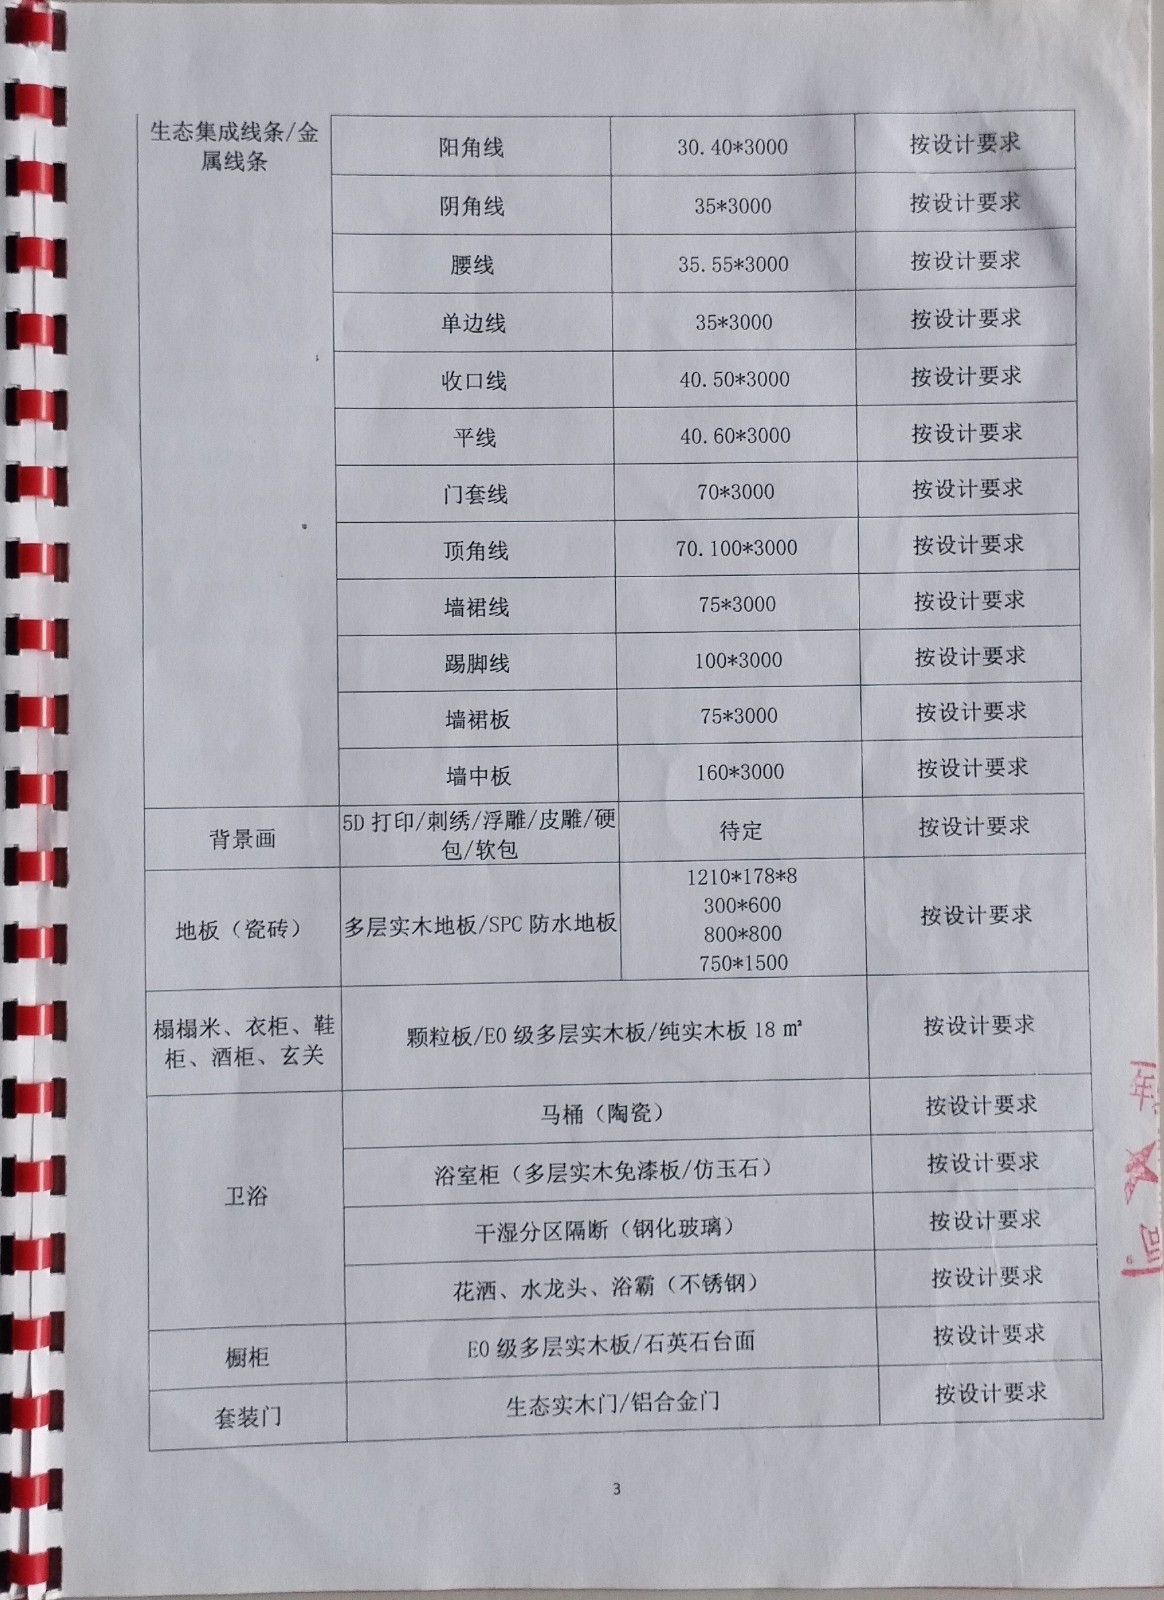 生态集成线条/金
属线条
阳角线 30.40*3000 按设计要求
阴角线 35*3000 按设计要求
腰线 35.55*3000 按设计要求
单边线 35*3000 按设计要求
收口线 40.50*3000 按设计要求
平线 40.60*3000 按设计要求
门套线 70*3000 按设计要求
顶角线 70.100*3000 按设计要求
墙裙线 75*3000 按设计要求
踢脚线 100*3000 按设计要求
墙裙板 75*3000 按设计要求
墙中板 160*3000 按设计要求
背景画
5D打印/刺绣/浮雕/皮雕/硬
包/软包
待定
按设计要求
地板（瓷砖）
多层实木地板/SPC防水地板
1210*178*8
300*600
800*800
750*1500
按设计要求
榻榻米、衣柜、鞋
柜、酒柜、玄关
颗粒板/E0级多层实木板/纯实木板18㎡
按设计要求
卫浴
马桶（陶瓷） 按设计要求
浴室柜（多层实木免漆板/仿玉石） 按设计要求
干湿分区隔断（钢化玻璃） 按设计要求
花洒、水龙头、浴霸（不锈钢） 按设计要求
橱柜 E0级多层实木板/石英石台面 按设计要求
套装门 生态实木门/铝合金门 按设计要求
3